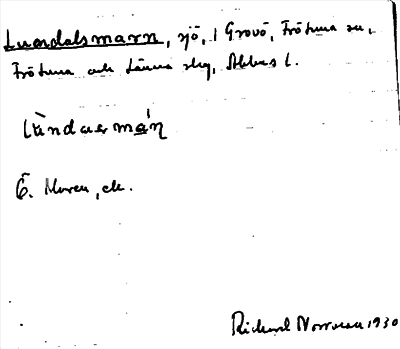 Lundalsmarn, sjö, i Grovö, Frötuna sn,
Frötuna och Länna slg, Sthlms l.
Lùndaermán
Ö. Muren, etc.
Richard Norrman 1930